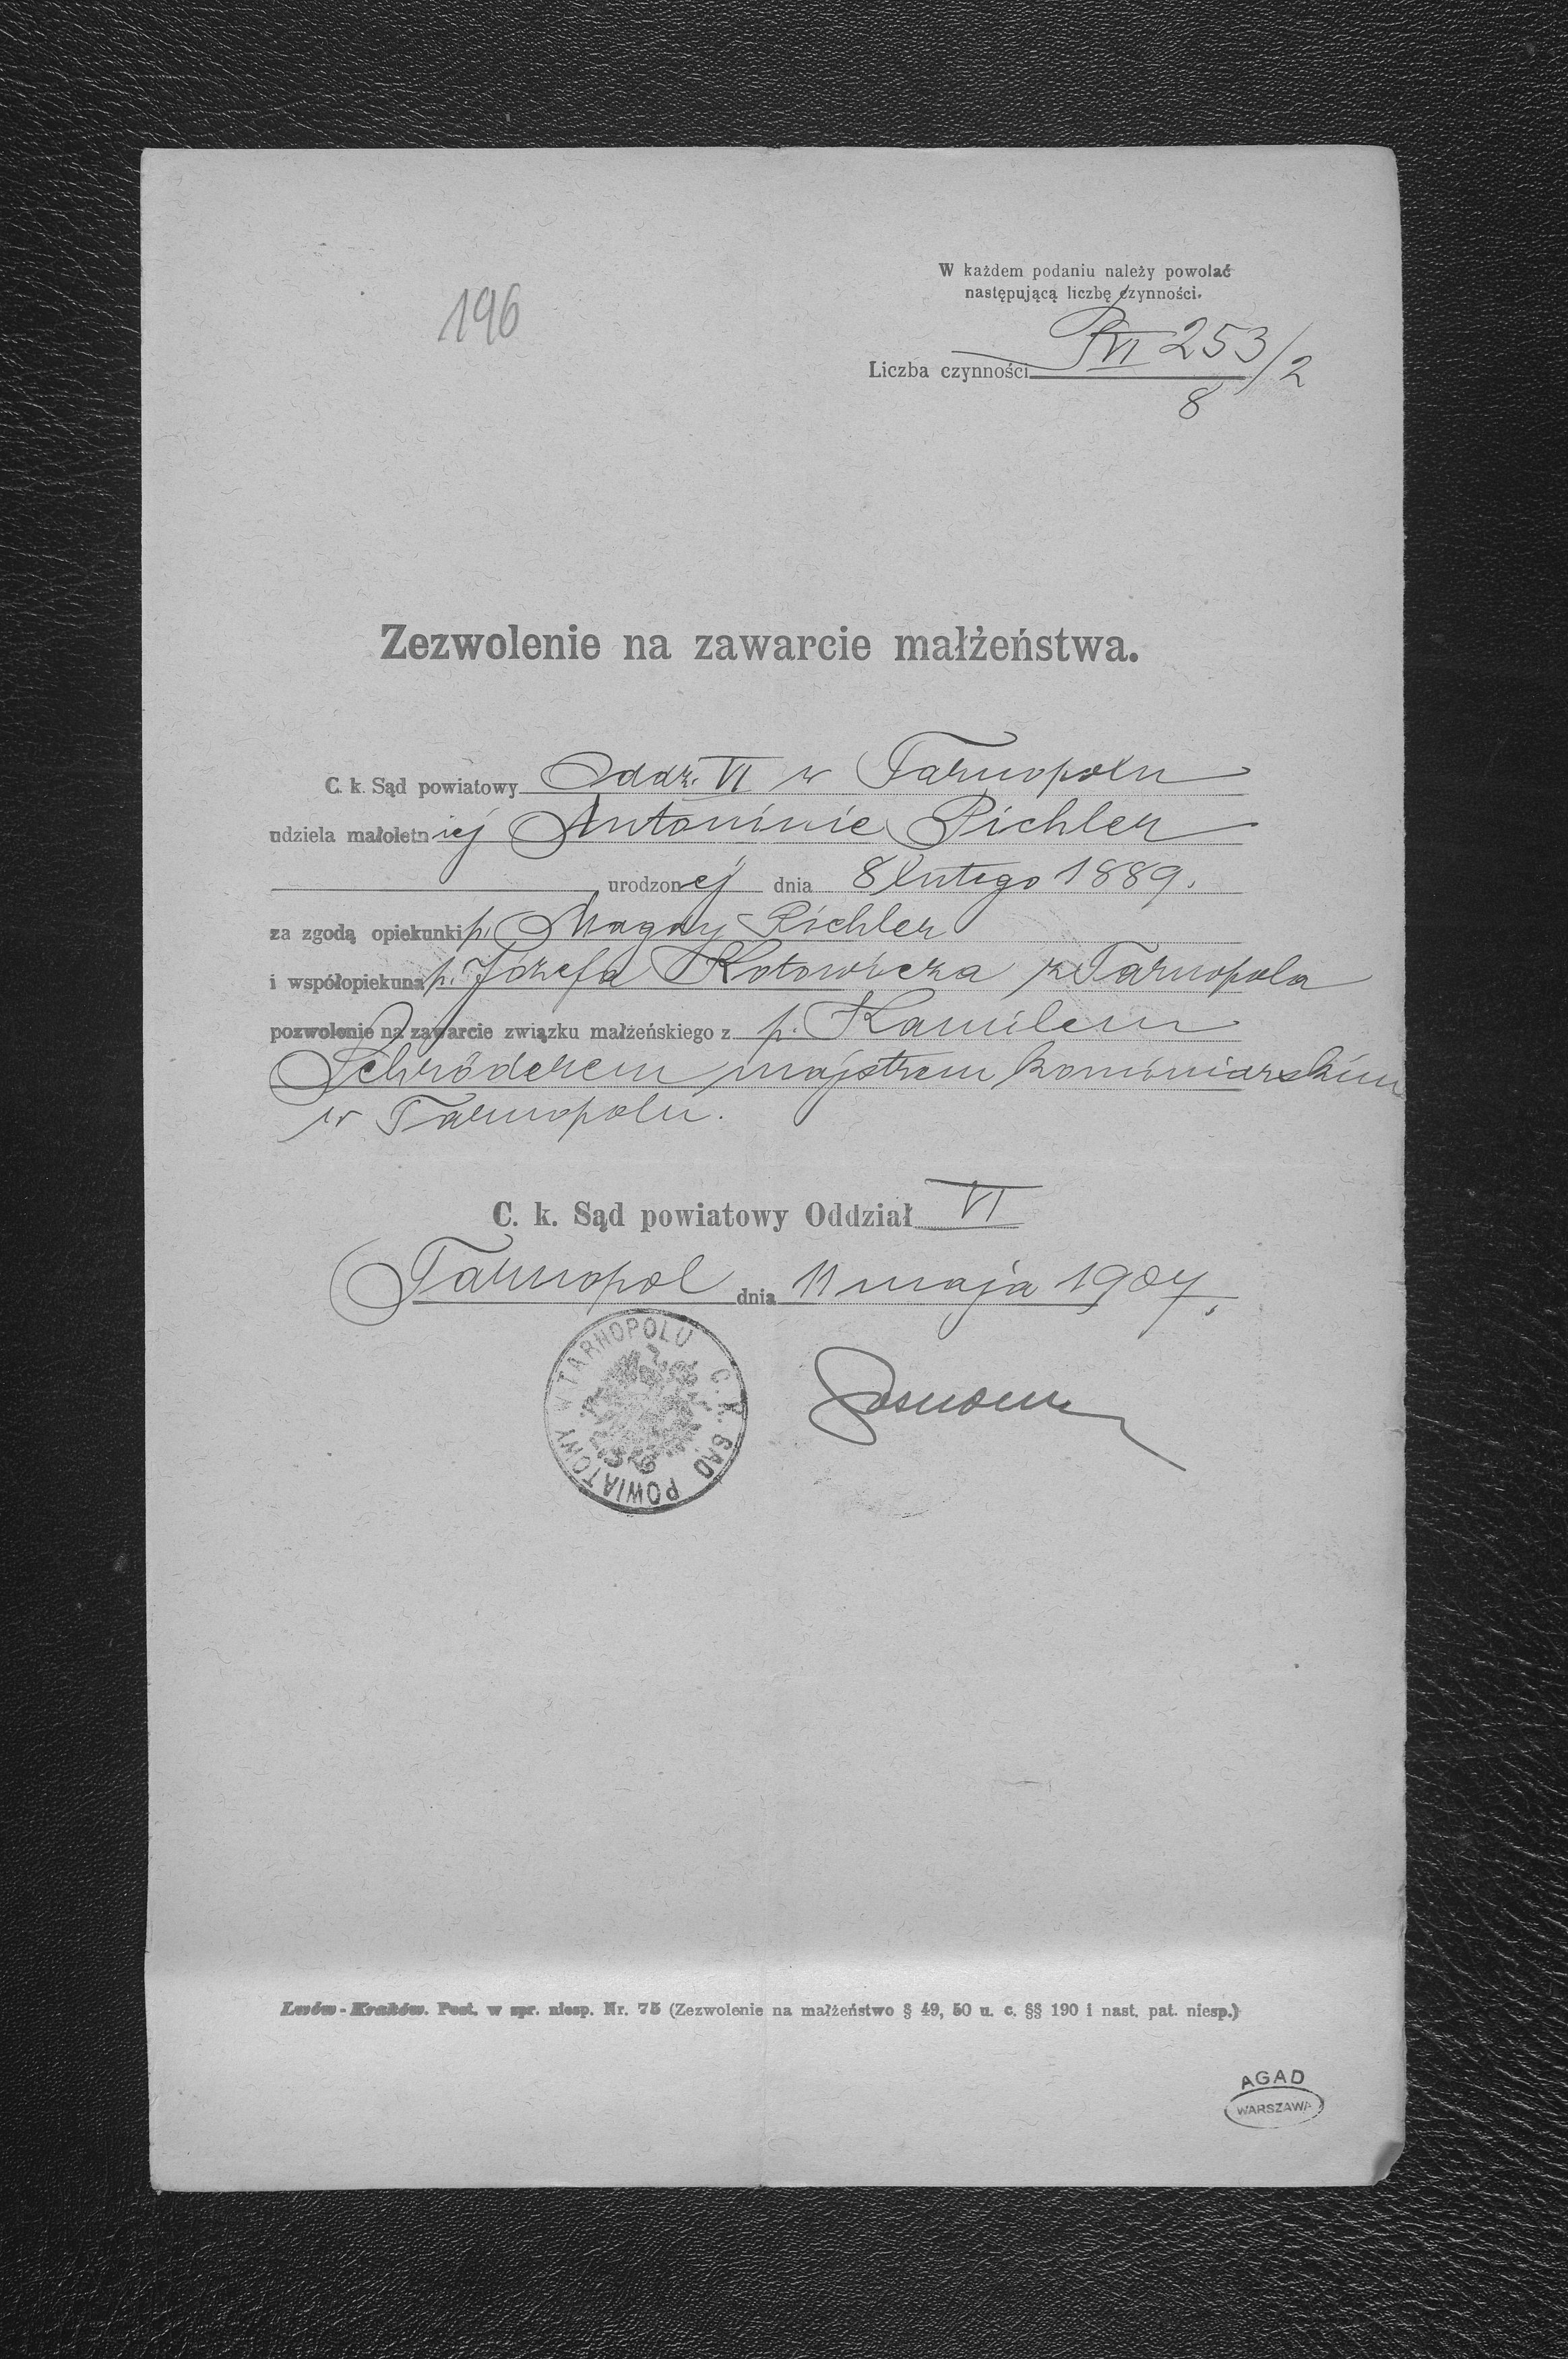 196
W każdem podaniu należy powołać
następującą liczbę czynności.
Liczba czynności P VI 253/2
8
Zezwolenie na zawarcie małżeństwa.
C. k. Sąd powiatowy Oddz. VI w Tarnopolu
udziela małoletniej Antoninie Pichler
urodzonej dnia 8 lutego 1889.
za zgodą opiekunki p. Magdy Pichler
i współopiekuna p. Józefa Kotowicza z Tarnopola
pozwolenie na zawarcie związku małżeńskiego z p. Kamilem
Schröderem majstrem kominiarskim
w Tarnopolu.
C. k. Sąd powiatowy Oddział VI
Tarnopol dnia 11 maja 1907.
C. K. SĄD POWIATOWY W TARNOPOLU
Lwów - Kraków. Post. w spr. niesp. Nr. 75 (Zezwolenie na małżeństwo § 49, 50 u. c. §§ 190 i nast. pat. niesp.)
AGAD
WARSZAWA